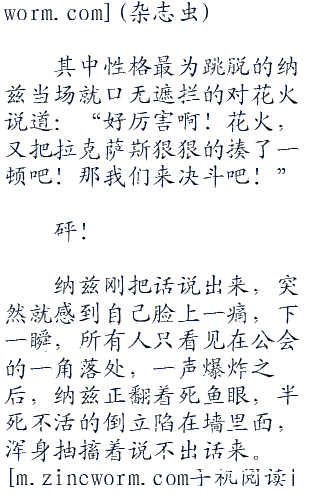 worm.com](杂志虫)
其中性格最为跳脱的纳
兹当场就口无遮拦的对花火
说道：“好厉害啊！花火，
又把拉克萨斯狠狠的揍了一
顿吧！那我们来决斗吧！”
砰！
纳兹刚把话说出来，突
然就感到自己脸上一痛，下
一瞬，所有人只看见在公会
的一角落处，一声爆炸之
后，纳兹正翻着死鱼眼，半
死不活的倒立陷在墙里面，
浑身抽搐着说不出话来。
[m.zincworm.com手机阅读]